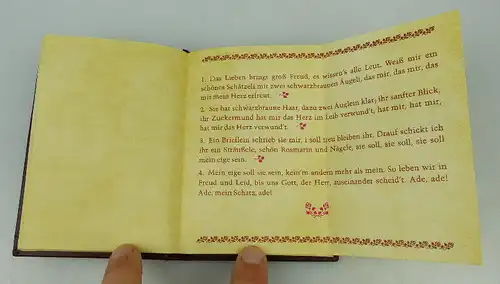 1. Das Lieben bringt groß Freud, es wissen's alle Leut. Weiß mir ein
schönes Schätzela mit zwei schwarzbraunen Äugeli, das mir, das mir, das
mir mein Herz erfreut.
2. Sie hat schwarzbraune Haar, dazu zwei Äuglein klar; ihr sanfter Blick,
ihr Zuckermund hat mir das Herz im Leib verwund't, hat mir, hat mir,
hat mir das Herz verwund't.
3. Ein Brieflein schrieb sie mir, i soll treu bleiben ihr. Drauf schickt ich
ihr ein Sträußele, schön Rosmarin und Nägele, sie soll, sie soll, sie soll
mein eige sein.
4. Mein eige soll sie sein, kein'm andern mehr als mein. So leben wir in
Freud und Leid, bis uns Gott, der Herr, auseinander scheid't. Ade, ade!
Ade, mein Schatz, ade!